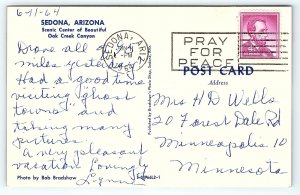 6-11-64
SEDONA, ARIZONA
Scenic Center of Beautiful
Oak Creek Canyon
Drove all
miles yesterday
Had a good time
visiting "ghost
towns" and
taking many
pictures.
A very pleasant
vacation. Lovingly
Lynn
Photo by Bob Bradshaw
SEDONA, ARIZ.
PM
PRAY
FOR
PEACE
POST CARD
Address
Mrs H D Wells
20 Forest Dale Rd
Minneapolis 10
Minnesota